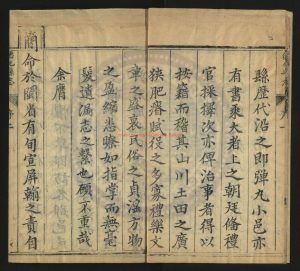 縣歷代治之即彈九小邑亦
有書乘大者上之朝廷脩禮
官採擇次亦俾治事者得以
按籍而稽其山川土田之廣
狹肥瘠賦役之多寡禮樂文
章之盛衰民俗之貞淫万物
之盈縮悉瞭如指掌而無毫
髮遺漏志之繫也顧不重哉
余膺
簡命於閩省有旬宣屏翰之責自